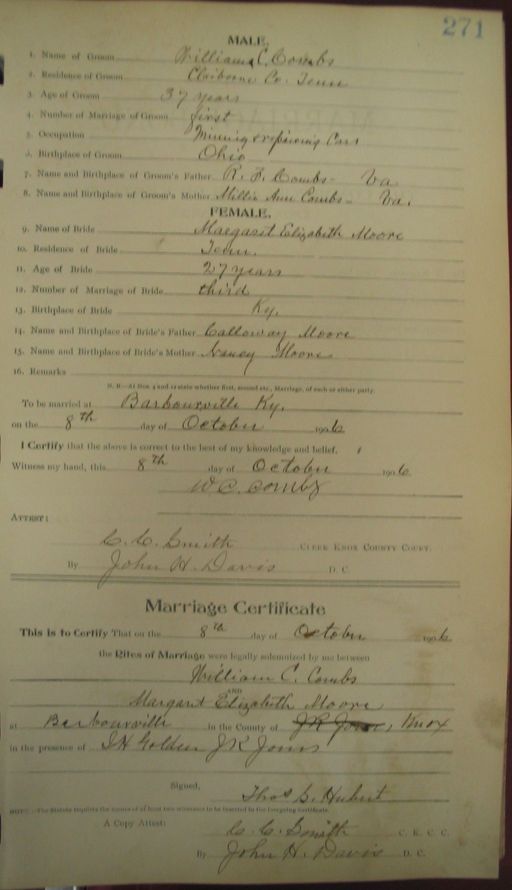 271
MALE.
1. Name of Groom William C. Combs
2. Residence of Groom Claiborne Co. Tenn
3. Age of Groom 37 years
4. Number of Marriage of Groom first
5. Occupation Mining & repairing Cars
6. Birthplace of Groom Ohio
7. Name and Birthplace of Groom's Father R. F. Combs - Va
8. Name and Birthplace of Groom's Mother Millie Ann Combs - Va.
FEMALE.
9. Name of Bride Margaret Elizabeth Moore
10. Residence of Bride Tenn.
11. Age of Bride 27 years
12. Number of Marriage of Bride third
13. Birthplace of Bride Ky.
14. Name and Birthplace of Bride's Father Calloway Moore
15. Name and Birthplace of Bride's Mother Nancy Moore
16. Remarks
N. B.—At Nos. 4 and 12 state whether first, second etc., Marriage, of each or either party.
To be married at Barbourville Ky.
on the 8th day of October 1906
I Certify that the above is correct to the best of my knowledge and belief.
Witness my hand, this 8th day of October 1906
W C Combs
ATTEST:
C. C. Smith CLERK KNOX COUNTY COURT.
By John H. Davis D. C.
Marriage Certificate
This is to Certify That on the 8th day of October 1906
the Rites of Marriage were legally solemnized by me between
William C. Combs
AND
Margaret Elizabeth Moore
at Barbourville in the County of JR Jones, Knox
in the presence of JR Jones
Signed,
Thos
NOTE.—The Statute requires the names of at least two witnesses to be inserted in the foregoing Certificate.
A Copy Attest:
C. C. Smith C. K. C. C.
By John H. Davis D. C.